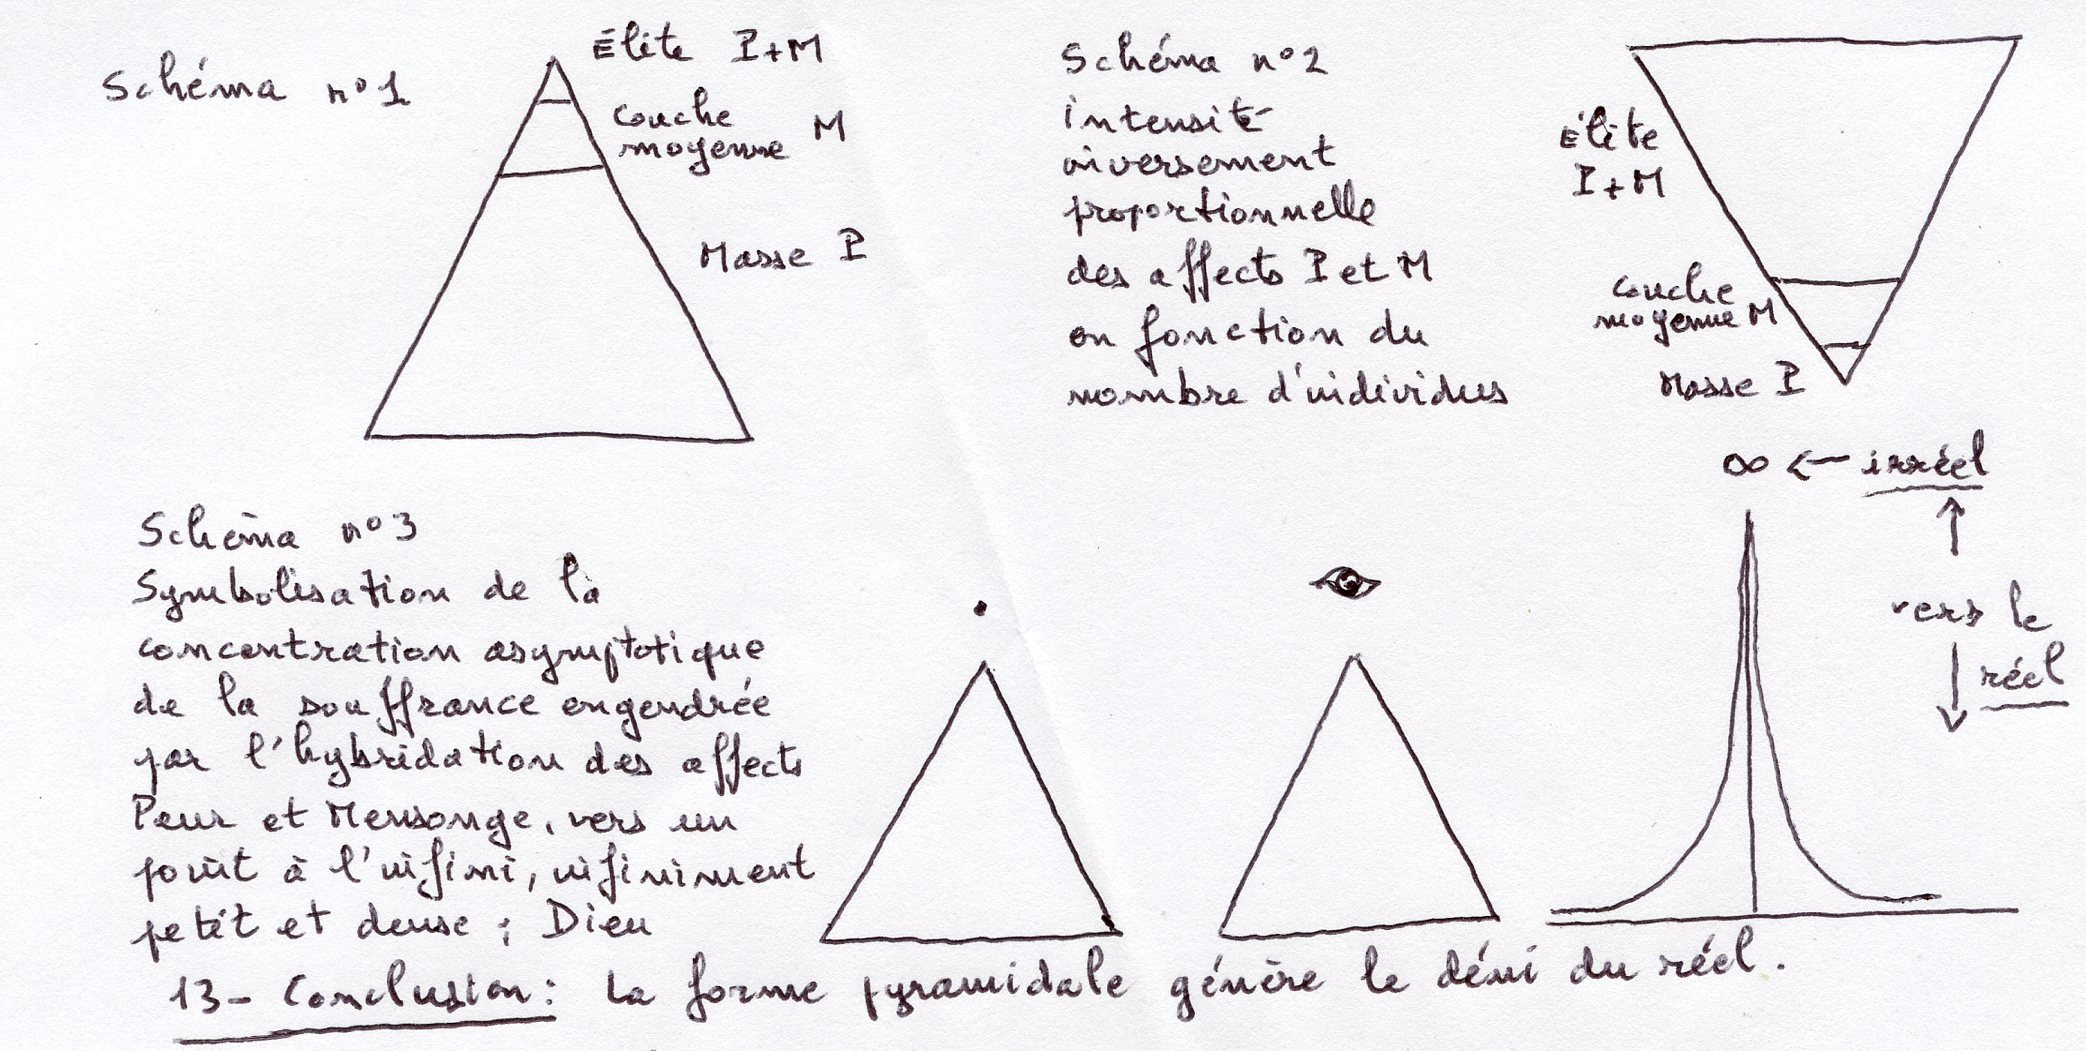 Schéma n°1
Élite P+M
couche
moyenne M
Masse P
Schéma n°2
intensité
inversement
proportionnelle
des affects P et M
en fonction du
nombre d'individus
Élite
P+M
couche
moyenne M
Masse P
Schéma n°3
Symbolisation de la
concentration asymptotique
de la souffrance engendrée
par l'hybridation des affects
Peur et Mensonge, vers un
point à l'infini, infiniment
petit et dense ; Dieu
∞ ← irréel
vers le
réel
13- Conclusion : La forme pyramidale génère le déni du réel.